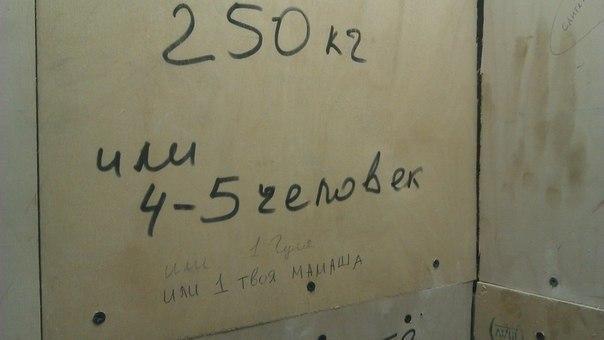 250 кг
или
4-5 человек
или 1
или 1 твоя мамаша